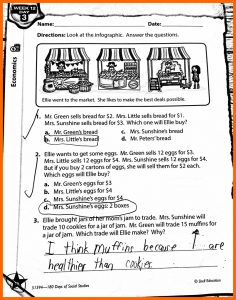 WEEK 12
DAY
3
Name: Date:
Economics
Directions: Look at the infographic. Answer the questions.
Ellie went to the market. She likes to make the best deals possible.
1. Mr. Green sells bread for $2. Mrs. Little sells bread for $1.
Mrs. Sunshine sells bread for $3. Which one will Ellie buy?
a. Mr. Green's bread c. Mrs. Sunshine's bread
b. Mrs. Little's bread d. Mr. Peters' bread
2. Ellie wants to get some eggs. Mr. Green sells 12 eggs for $3.
Mrs. Little sells 12 eggs for $4. Mrs. Sunshine sells 12 eggs for $4.
But if you buy 2 cartons of eggs, she will sell them for $2 each.
Which eggs will Ellie buy?
a. Mr. Green's eggs for $3
b. Mrs. Little's eggs for $4
c. Mrs. Sunshine's eggs for $4
d. Mrs. Sunshine's eggs: 2 boxes
3. Ellie brought jars of her mom's jam to trade. Mrs. Sunshine will
trade 10 cookies for a jar of jam. Mr. Green will trade 15 muffins for
a jar of jam. Which trade will Ellie make? Why?
I think muffins because are
healthier than cookies
51394—180 Days of Social Studies © Shell Education